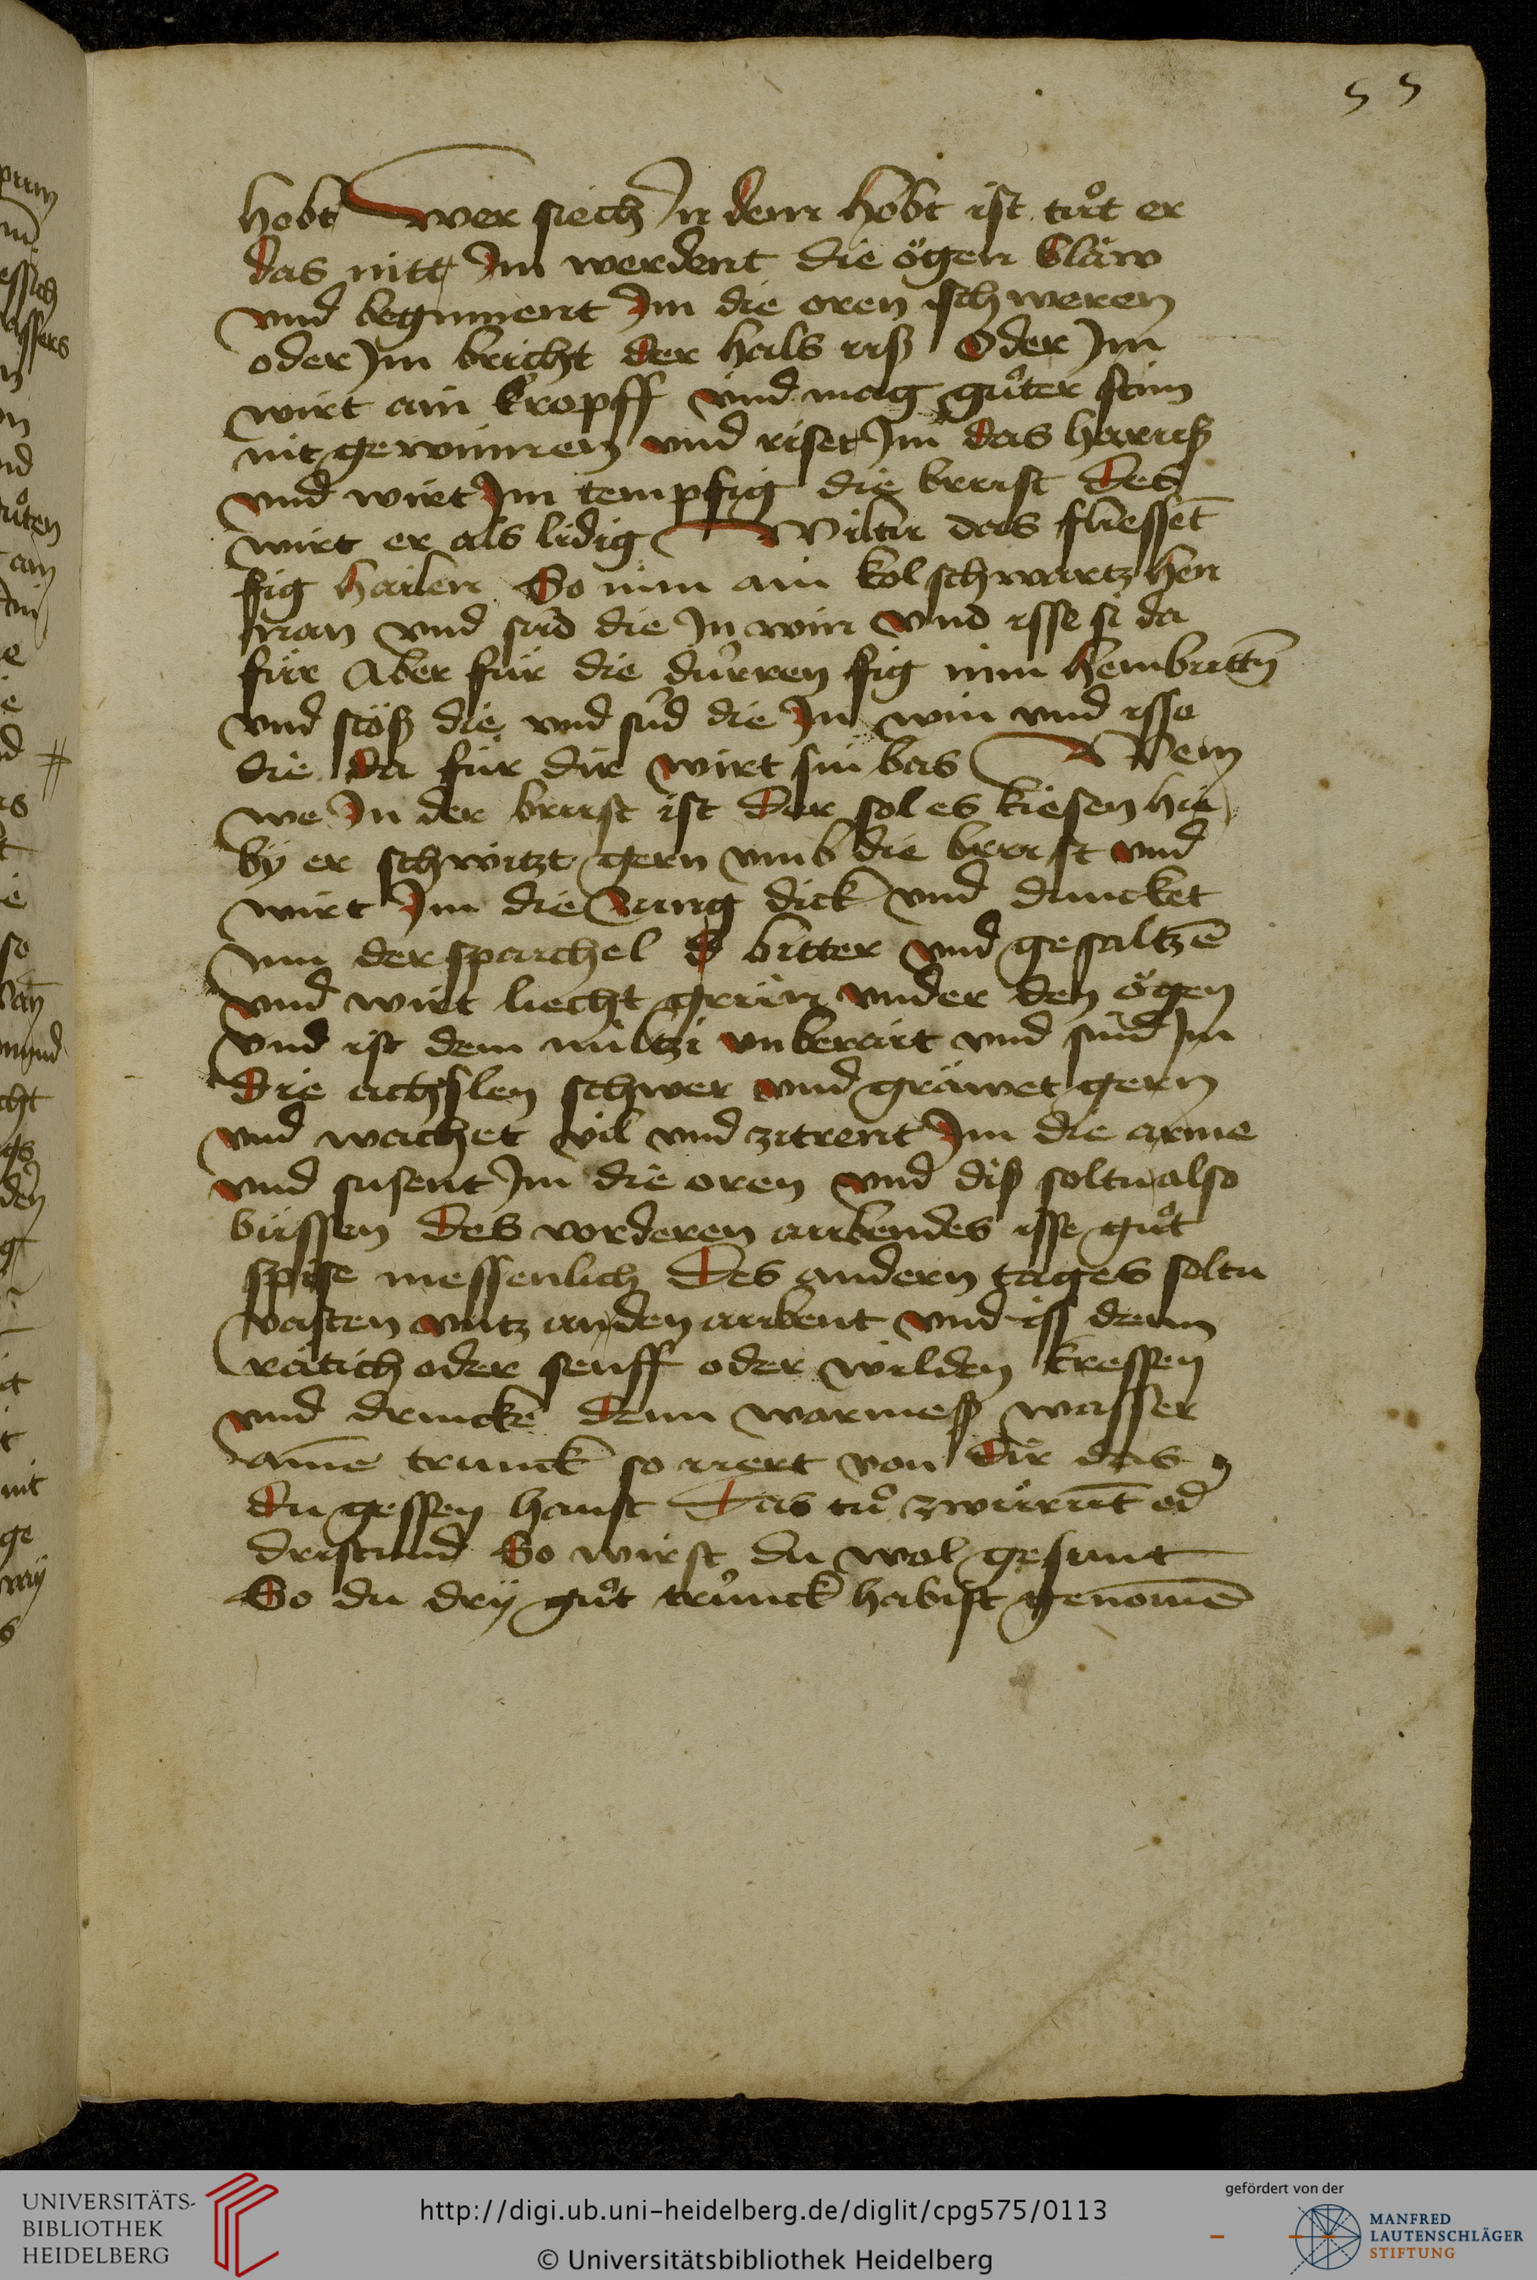 55
hobt Wer siech In dem hobt ist tuͦt er
das nitt Im werdent die ögen bläw
vnd beginnent Im die oren schweren
oder Im bricht der hals vß Oder Im
wirt ain kropff vnd mag guͦter stim
nit gewinnen vnd riset Im das har vß
vnd wirt Im tempfig die brust des
wirt er als lidig Wiltu das fliessēt
fig hailen So nim ain kol schwartz hen
man vnd sud die In win vnd isse si da
für Aber für die dürren fig nim hembuttn̄
vnd stöß die vnd sud die In win vnd isse
die da für dir wirt sin bas Wem
we In der brust ist der sol es kiesen hie
by er schwitzt gern vmb die brust vnd
wirt Im die zung dick vnd duncket
Im der spaichel bitter vnd gesaltzē
vnd wirt liecht grün vnder den ögen
vnd ist dem miltzi vnberait vnd sind Im
die achslen schwer vnd gräwet gern
vnd wachet vil vnd zitrent Im die arme
vnd susent Im die oren vnd diß soltu also
büssen des vorderen aubendes isse guͦt
spise messenlich Des andern tages soltu
vasten vntz an den aubent vnd iss denn
rätich oder senff oder wilden kressen
vnd drincke denn warmeß wasser
ainē trunck so vert von dir das
du gessen haust Das tuͦ zwürūt od
dristund So wirst du wol gesunt
So du dry guͦt trunck habist genomē
UNIVERSITÄTS-
BIBLIOTHEK
HEIDELBERG
http://digi.ub.uni-heidelberg.de/diglit/cpg575/0113
© Universitätsbibliothek Heidelberg
gefördert von der
MANFRED
LAUTENSCHLÄGER
STIFTUNG